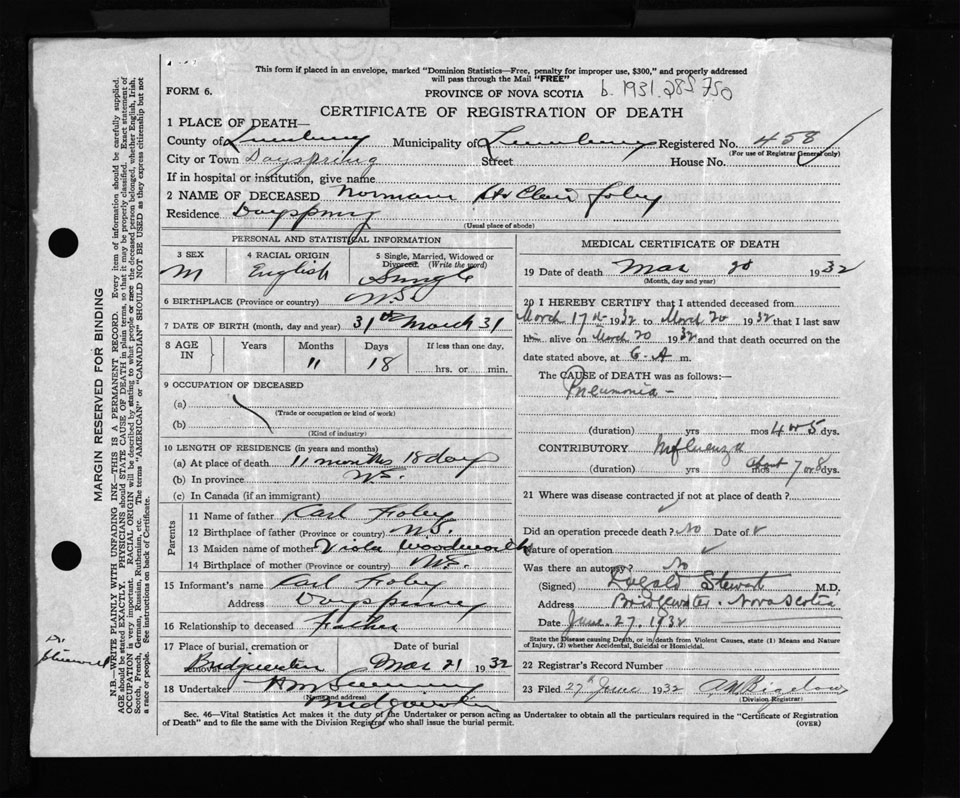 This form if placed in an envelope, marked "Dominion Statistics—Free, penalty for improper use, $300," and properly addressed
will pass through the Mail "FREE"
FORM 6.
PROVINCE OF NOVA SCOTIA b. 1931.285750
CERTIFICATE OF REGISTRATION OF DEATH
1 PLACE OF DEATH—
County of Lunenburg Municipality of Lunenburg Registered No. 458
(For use of Registrar General only)
City or Town Dayspring Street House No.
If in hospital or institution, give name
2 NAME OF DECEASED Norman St Clair Foley
Residence Dayspring
(Usual place of abode)
PERSONAL AND STATISTICAL INFORMATION
3 SEX 4 RACIAL ORIGIN 5 Single, Married, Widowed or
Divorced. (Write the word)
M English Single
6 BIRTHPLACE (Province or country) N.S.
7 DATE OF BIRTH (month, day and year) 31st March 31
8 AGE IN Years Months Days If less than one day,
11 18 hrs. or min.
9 OCCUPATION OF DECEASED
(a)
(Trade or occupation or kind of work)
(b)
(Kind of industry)
10 LENGTH OF RESIDENCE (in years and months)
(a) At place of death 11 months 18 day
(b) In province N.S.
(c) In Canada (if an immigrant)
Parents
11 Name of father Carl Foley
12 Birthplace of father (Province or country) N.S.
13 Maiden name of mother Viola Woodworth
14 Birthplace of mother (Province or country) N.S.
15 Informant's name Carl Foley
Address Dayspring
16 Relationship to deceased Father
17 Place of burial, cremation or removal Date of burial
Bridgewater Mar 21 1932
18 Undertaker
(Name and address)
Bridgewater
MEDICAL CERTIFICATE OF DEATH
19 Date of death Mar 20 1932
(Month, day and year)
20 I HEREBY CERTIFY that I attended deceased from
March 17th 1932 to March 20 1932 that I last saw
him alive on March 20 1932 and that death occurred on the
date stated above, at 6. A m.
The CAUSE of DEATH was as follows:—
Pneumonia —
(duration) yrs mos 4 or 5 dys.
CONTRIBUTORY Influenza
(duration) yrs mos about 7 or 8 dys.
21 Where was disease contracted if not at place of death?
Did an operation precede death? No Date of
Nature of operation
Was there an autopsy? No
(Signed) Dugald Stewart M.D.
Address Bridgewater. Nova Scotia
Date June. 27. 1932
State the Disease causing Death, or in death from Violent Causes, state (1) Means and Nature
of Injury, (2) whether Accidental, Suicidal or Homicidal.
22 Registrar's Record Number
23 Filed 27th June 1932
(Division Registrar)
Sec. 46—Vital Statistics Act makes it the duty of the Undertaker or person acting as Undertaker to obtain all the particulars required in the "Certificate of Registration
of Death" and to file the same with the Division Registrar who shall issue the burial permit. (OVER)
MARGIN RESERVED FOR BINDING
N.B.—WRITE PLAINLY WITH UNFADING INK—THIS IS A PERMANENT RECORD. Every item of information should be carefully supplied.
AGE should be stated EXACTLY. PHYSICIANS should STATE CAUSE OF DEATH in plain terms, so that it may be properly classified. Exact statement of
OCCUPATION is very important. RACIAL ORIGIN will be described by stating to what people or race the deceased person belonged, whether English, Irish,
Scotch, French, German, Russian, Ruthenian, etc. The terms "AMERICAN" or "CANADIAN" SHOULD NOT BE USED as they express citizenship but not
a race or people. See instructions on back of Certificate.